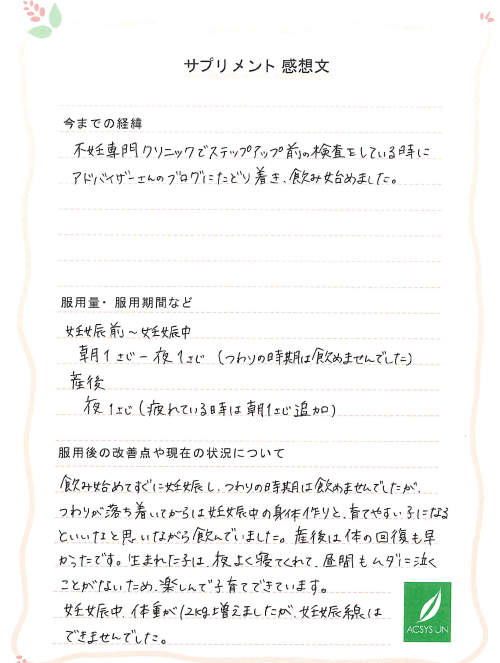 サプリメント 感想文
今までの経緯
不妊専門クリニックでステップアップ前の検査をしている時に
アドバイザーさんのブログにたどり着き、飲み始めました。
服用量・服用期間など
妊娠前～妊娠中
朝1さじー夜1さじ（つわりの時期は飲めませんでした）
産後
夜1さじ（疲れている時は朝1さじ追加）
服用後の改善点や現在の状況について
飲み始めてすぐに妊娠し、つわりの時期は飲めませんでしたが、
つわりが落ち着いてからは妊娠中の身体作りと、育てやすい子になる
といいなと思いながら飲んでいました。産後は体の回復も早
かったです。生まれた子は、夜よく寝てくれて、昼間もムダに泣く
ことがないため、楽しんで子育てできています。
妊娠中、体重が12kg増えましたが、妊娠線は
できませんでした。
ACSYS UN